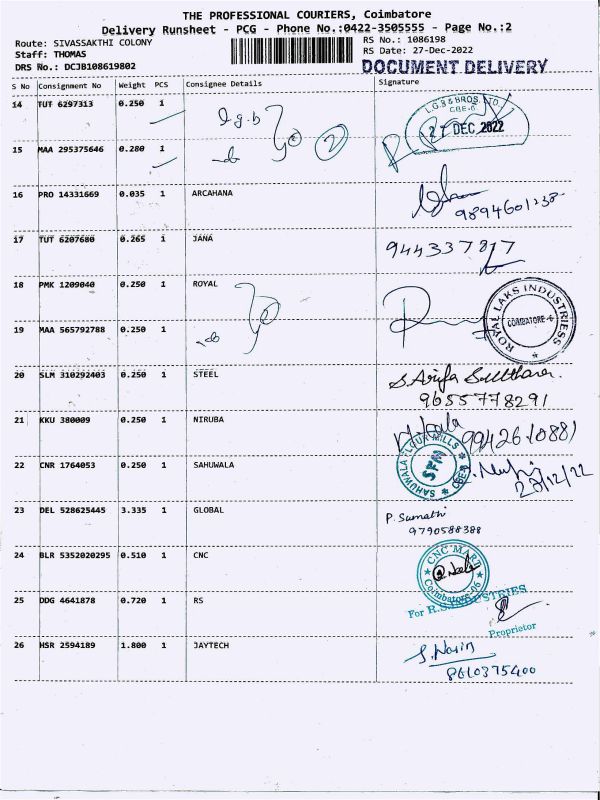 THE PROFESSIONAL COURIERS, Coimbatore
Delivery Runsheet - PCG - Phone No.:0422-3505555 - Page No.:2
Route: SIVASSAKTHI COLONY
RS No.: 1086198
Staff: THOMAS
RS Date: 27-Dec-2022
DRS No.: DCJB108619802
DOCUMENT DELIVERY
S No Consignment No Weight PCS Consignee Details Signature
14 TUT 6297313 0.250 1 L.G.B & BROS. LTD CBE-6.
27 DEC 2022
15 MAA 295375646 0.280 1 2
16 PRO 14331669 0.035 1 ARCAHANA
9894601238
17 TUT 6207680 0.265 1 JANA 944337817
18 PMK 1209040 0.250 1 ROYAL ROYAL LAKS INDUSTRIESS COIMBATORE-6
19 MAA 565792788 0.250 1
20 SLM 310292403 0.250 1 STEEL S. Arifa Sulthana
9655778291
21 KKU 380009 0.250 1 NIRUBA 9942610881
22 CNR 1764053 0.250 1 SAHUWALA SAHUWALA FLOUR MILLS SFM CBE-6
27/12/22
23 DEL 528625445 3.335 1 GLOBAL P. Sumathi
9790588388
24 BLR 5352020295 0.510 1 CNC CNC MART Coimbatore-06
25 DDG 4641878 0.720 1 RS For R.S. INDUSTRIES
Proprietor
26 HSR 2594189 1.800 1 JAYTECH
8610375400